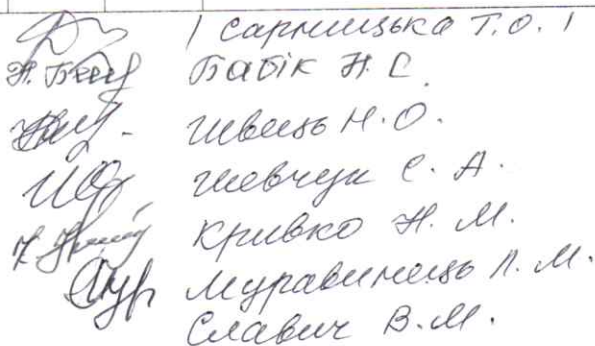 / Сарницька Т.О. /
Бабік Н. С.
Швець Н.О.
Шевчук С. А.
Кривко Н. М.
Муравинець Л. М.
Славич В.М.